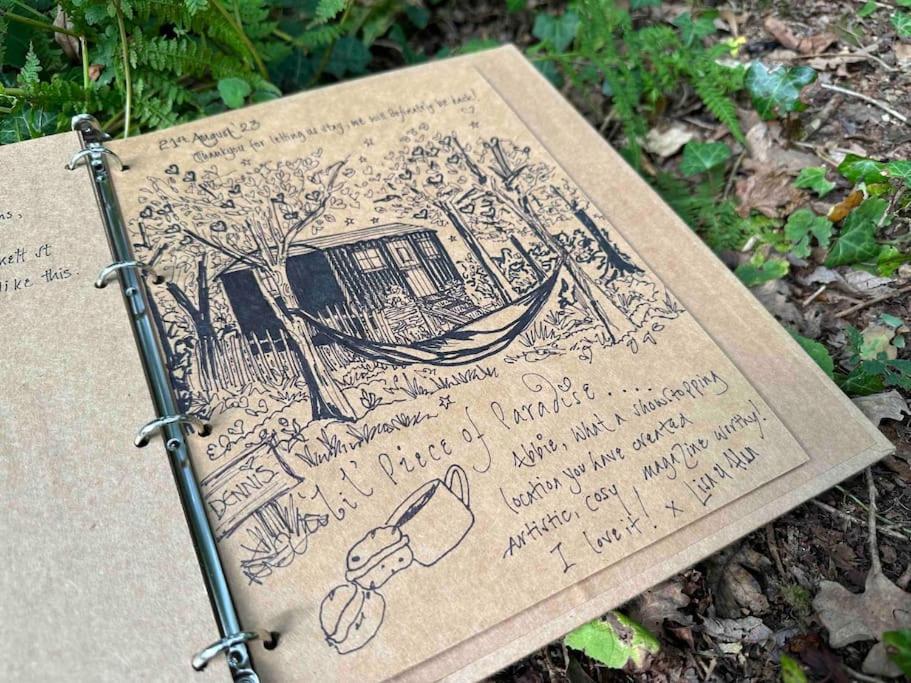 ns,
kett st
like this.
21st August 23
Thankyou for letting us stay, we will definately be back!
DENNIS
'Lil' Piece of Paradise ....
Abbie, what a showstopping
location you have created
Artistic, cosy, magazine worthy!
I love it! x